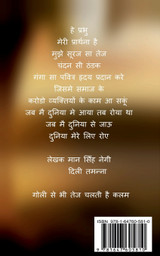 हे प्रभु
मेरी प्रार्थना है
मुझे सूरज सा तेज
चंदन सी ठंडक
गंगा सा पवित्र हृदय प्रदान करे
जिससे समाज के
करोड़ो व्यक्तियों के काम आ सकूं
जब मैं दुनिया मे आया तब रोया था
जब मैं दुनिया से जाऊ
दुनिया मेरे लिए रोए
लेखक मान सिंह नेगी
दिली तमन्ना
गोली से भी तेज चलती है कलम